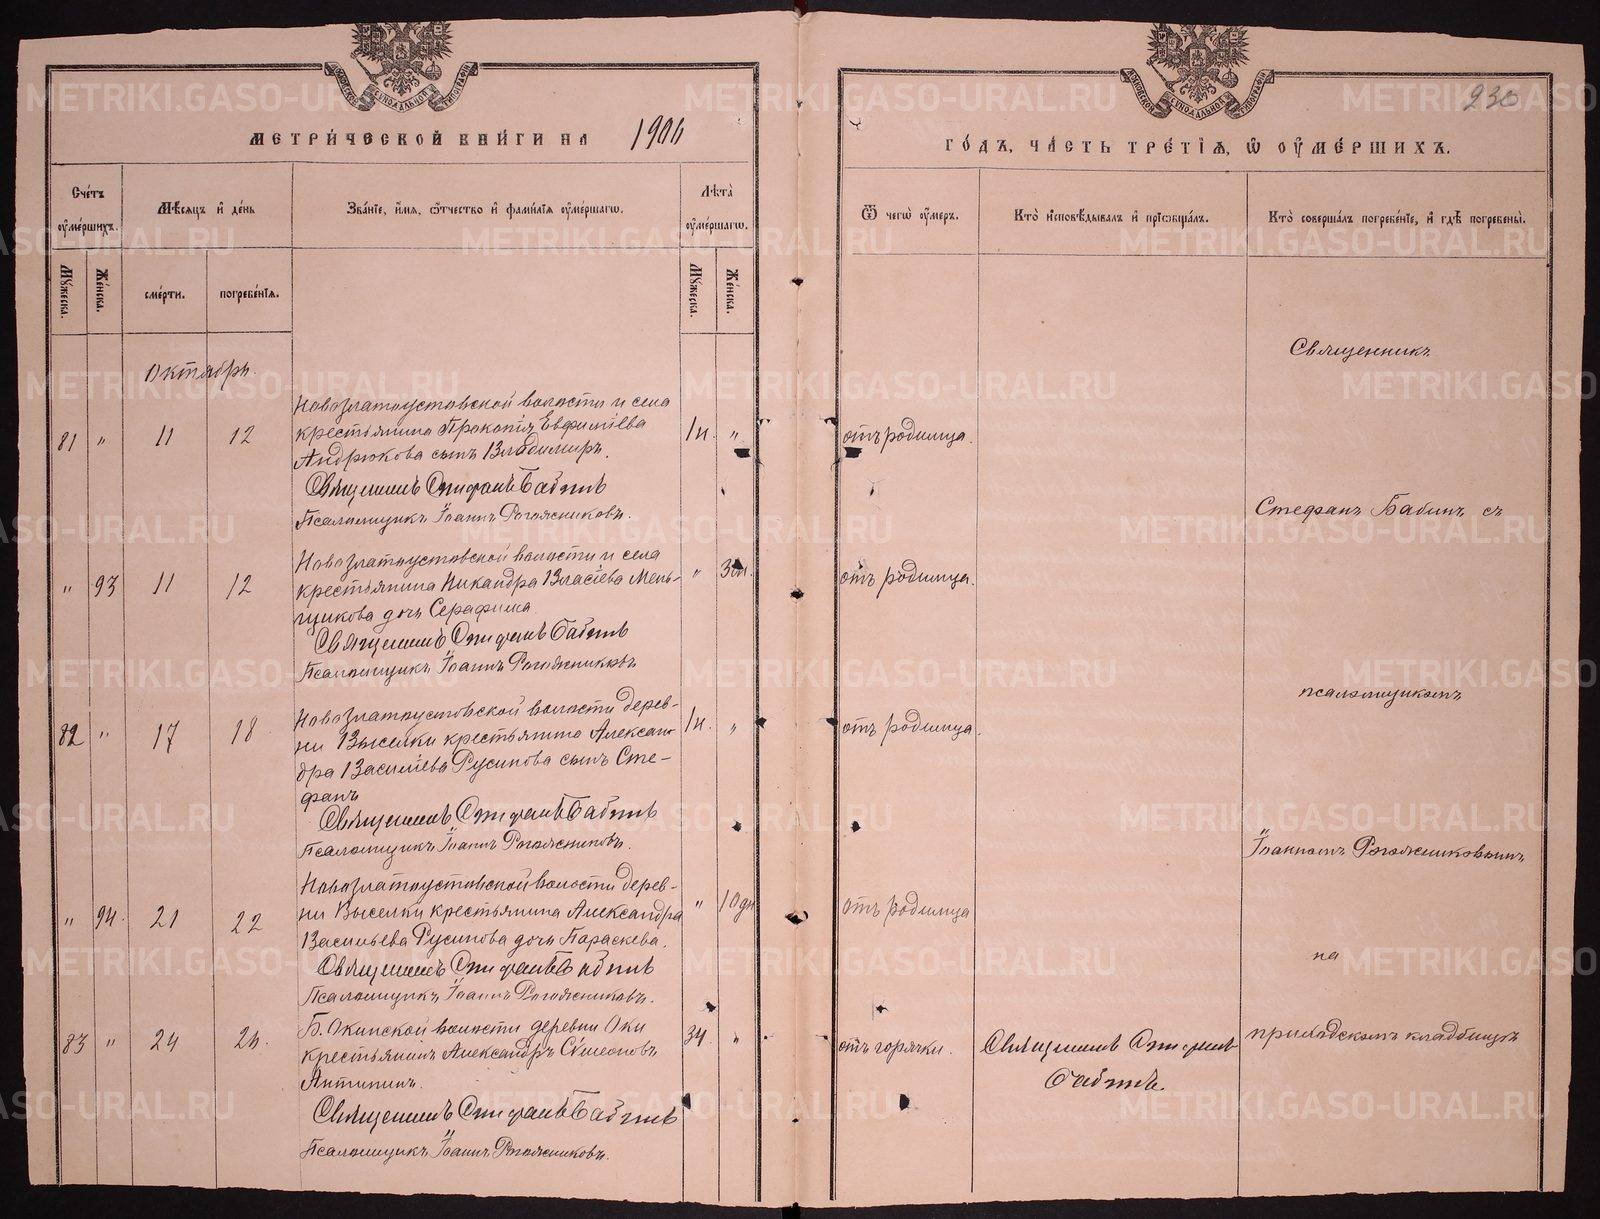 МЕТРИЧЕСКОЙ КНИГИ НА 1906
ГОДЪ, ЧАСТЬ ТРЕТІЯ, Ѡ ОУМЕРШИХЪ.
230
Счетъ оумершихъ.
Мѣсяцъ и день
Званіе, имя, ѿчество и фамилія оумершагѡ.
Лѣта оумершагѡ.
Ѿ чегѡ оумеръ.
Кто исповѣдывалъ и пріобщалъ.
Кто совершалъ погребеніе, и гдѣ погребены.
Мужеска.
Женска.
смерти.
погребенія.
Мужеска.
Женска.
Октябрь.
81 " 11 12
Новозлатоустовской волости и села
крестьянина Прокопія Евфиміева
Андрюкова сынъ Владимиръ.
1н. "
отъ родимца.
Священникъ Стефанъ Бабинъ
Псаломщикъ Іоаннъ Рогожниковъ.
" 93 11 12
Новозлатоустовской волости и села
крестьянина Никандра Власіева Мень-
щикова дочь Серафима
"
отъ родимца.
Священникъ Стефанъ Бабинъ
Псаломщикъ Іоаннъ Рогожниковъ
82 " 17 18
Новозлатоустовской волости дерев-
ни Выселки крестьянина Алексан-
дра Василіева Русинова сынъ Сте-
фанъ
1н. "
отъ родимца.
Священникъ Стефанъ Бабинъ
Псаломщикъ Іоаннъ Рогожниковъ.
" 94. 21 22
Новозлатоустовской волости дерев-
ни Выселки крестьянина Александра
Васильева Русинова дочь Параскева.
" 10дн
отъ родимца
Священникъ Стефанъ Бабинъ
Псаломщикъ Іоаннъ Рогожниковъ.
83 " 24 26.
Б. Окинской волости деревни Оки
крестьянинъ Александръ Сѵмеоновъ
Антипинъ.
34 "
отъ горячки.
Священникъ Стефанъ
Бабинъ.
Священникъ Стефанъ Бабинъ
Псаломщикъ Іоаннъ Рогожниковъ.
Священникъ
Стефанъ Бабинъ съ
псаломщикомъ
Іоанномъ Рогожниковымъ
на
приходскомъ кладбищѣ
METRIKI.GASO-URAL.RU